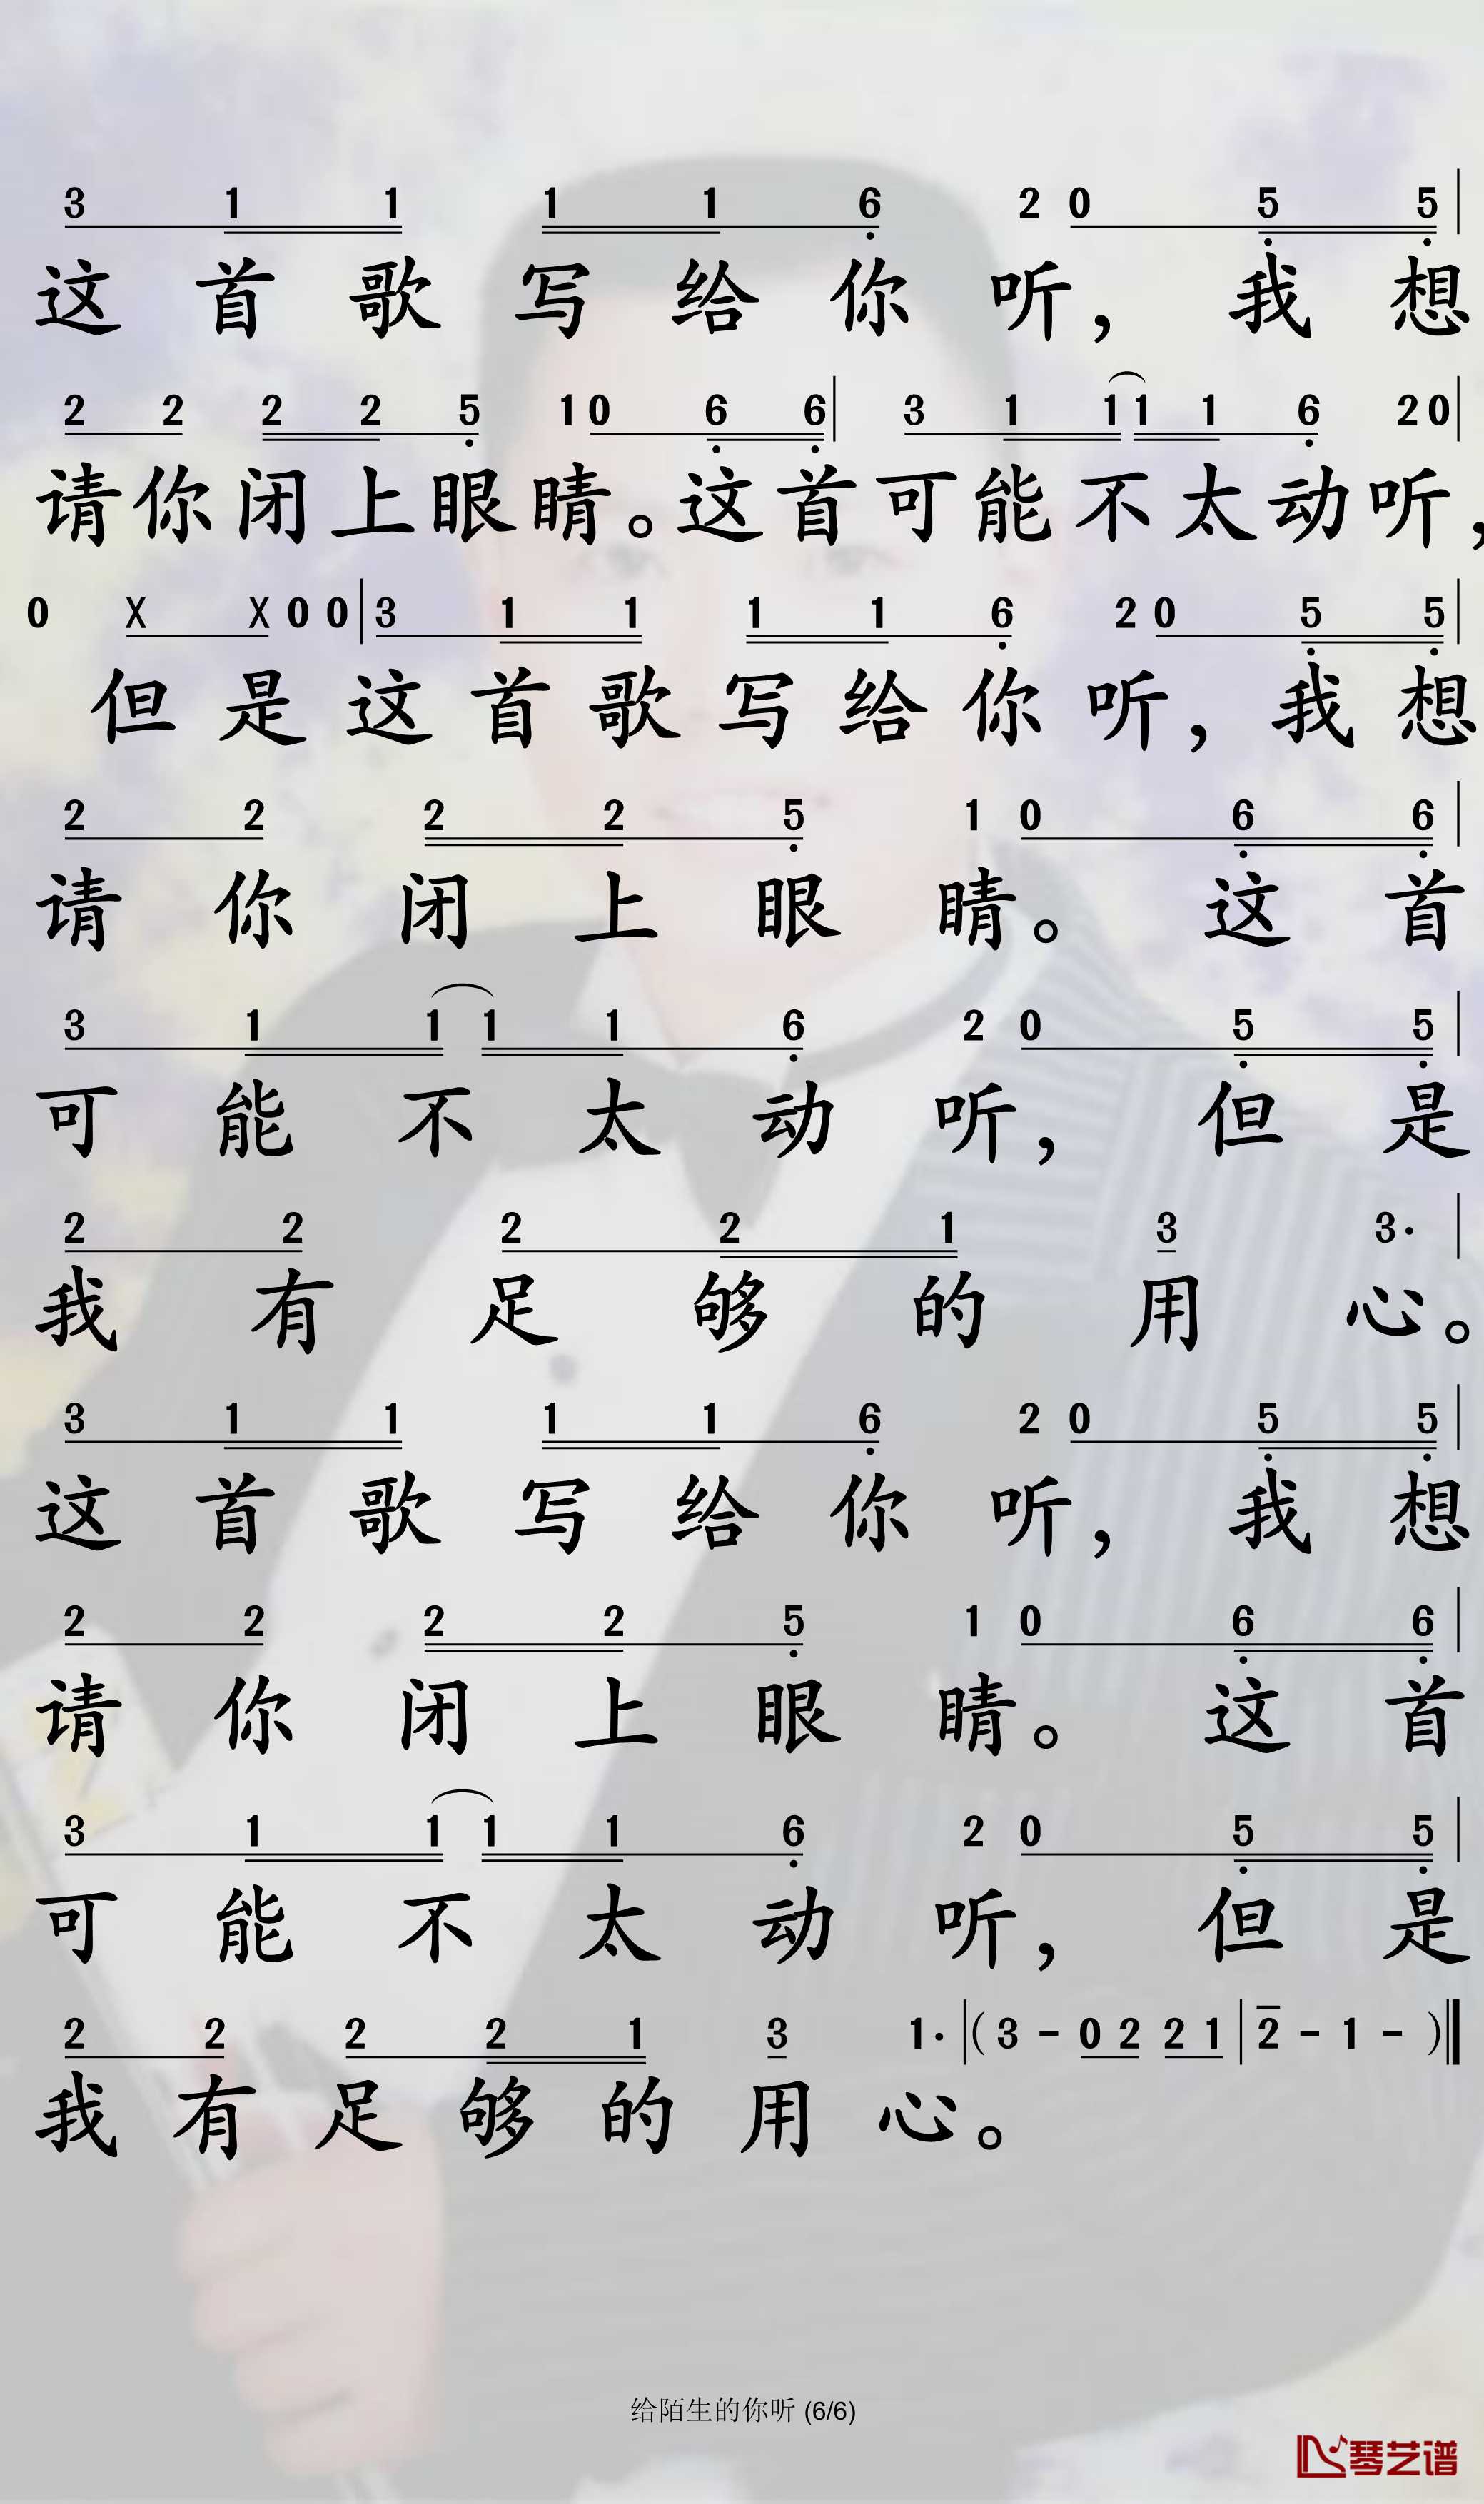 3 1 1 1 1 6 2 0 5 5
这首歌写给你听，我想
2 2 2 2 5 1 0 6 6 | 3 1 1 1 1 6 2 0 |
请你闭上眼睛。这首可能不太动听，
0 X X 0 0 | 3 1 1 1 1 6 2 0 5 5 |
但是这首歌写给你听，我想
2 2 2 2 5 1 0 6 6 |
请你闭上眼睛。这首
3 1 1 1 1 6 2 0 5 5 |
可能不太动听，但是
2 2 2 2 1 3 3· |
我有足够的用心。
3 1 1 1 1 6 2 0 5 5 |
这首歌写给你听，我想
2 2 2 2 5 1 0 6 6 |
请你闭上眼睛。这首
3 1 1 1 1 6 2 0 5 5 |
可能不太动听，但是
2 2 2 2 1 3 1· | ( 3 - 0 2 2 1 | 2 - 1 - ) ||
我有足够的用心。
给陌生的你听 (6/6)
琴艺谱